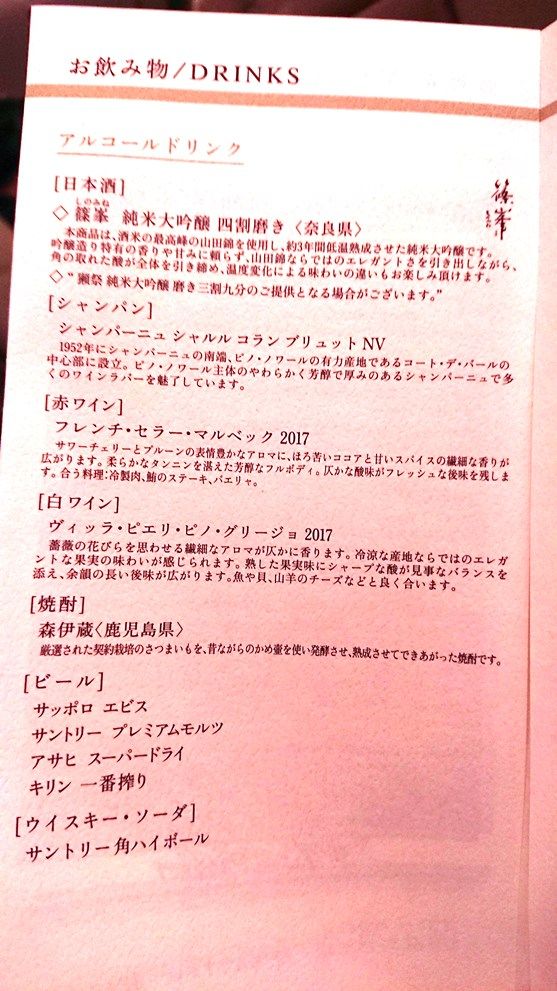 お飲み物/DRINKS
アルコールドリンク
[日本酒]
しのみね
◇篠峯 純米大吟醸 四割磨き〈奈良県〉
篠峯
本商品は、酒米の最高峰の山田錦を使用し、約3年間低温熟成させた純米大吟醸です。
吟醸造り特有の香りや甘みに頼らず、山田錦ならではのエレガントさを引き出しながら、
角の取れた酸が全体を引き締め、温度変化による味わいの違いもお楽しみ頂けます。
◇“獺祭 純米大吟醸 磨き三割九分のご提供となる場合がございます。”
[シャンパン]
シャンパーニュ シャルル コラン ブリュット NV
1952年にシャンパーニュの南端、ピノ・ノワールの有力産地であるコート・デ・バールの
中心部に設立。ピノ・ノワール主体のやわらかく芳醇で厚みのあるシャンパーニュで多
くのワインラバーを魅了しています。
[赤ワイン]
フレンチ・セラー・マルベック 2017
サワーチェリーとプルーンの表情豊かなアロマに、ほろ苦いココアと甘いスパイスの繊細な香りが
広がります。柔らかなタンニンを湛えた芳醇なフルボディ。仄かな酸味がフレッシュな後味を残しま
す。合う料理:冷製肉、鮪のステーキ、パエリャ。
[白ワイン]
ヴィッラ・ピエリ・ピノ・グリージョ 2017
薔薇の花びらを思わせる繊細なアロマが仄かに香ります。冷涼な産地ならではのエレガ
ントな果実の味わいが感じられます。熟した果実味にシャープな酸が見事なバランスを
添え、余韻の長い後味が広がります。魚や貝、山羊のチーズなどと良く合います。
[焼酎]
森伊蔵〈鹿児島県〉
厳選された契約栽培のさつまいもを、昔ながらのかめ壷を使い発酵させ、熟成させてできあがった焼酎です。
[ビール]
サッポロ エビス
サントリー プレミアムモルツ
アサヒ スーパードライ
キリン 一番搾り
[ウイスキー・ソーダ]
サントリー角ハイボール